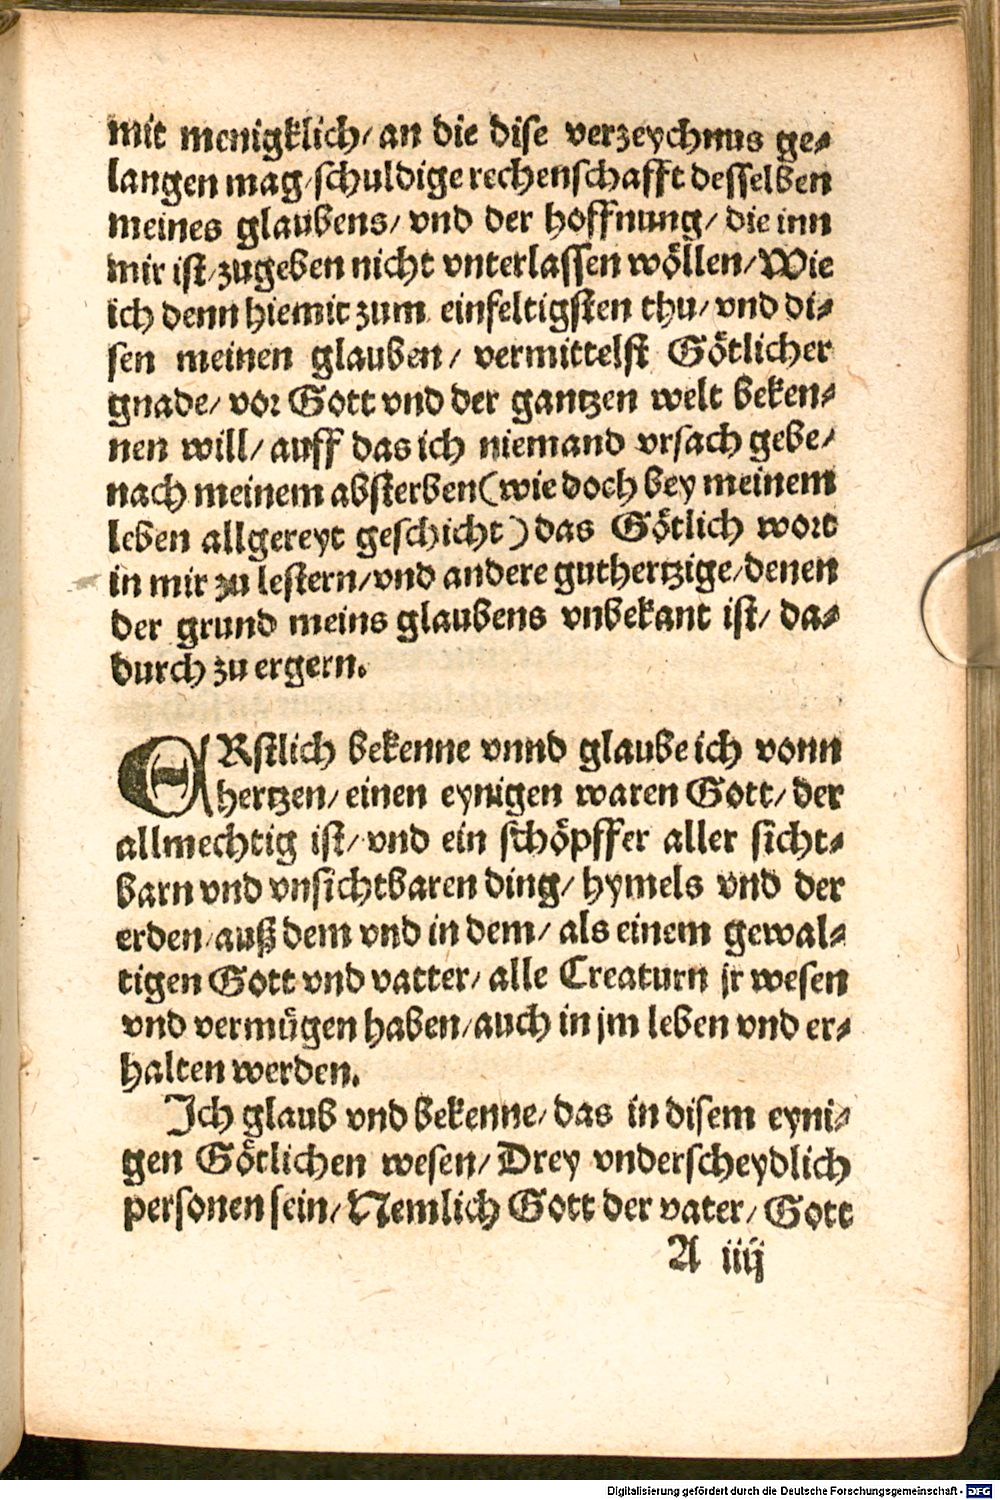 mit menigklich/ an die dise verzeychnus ge-
langen mag/ schuldige rechenschafft desselben
meines glaubens/ vnd der hoffnung/ die inn
mir ist/ zugeben nicht vnterlassen wöllen/ Wie
ich denn hiemit zum einfeltigsten thu/ vnd di-
sen meinen glauben/ vermittelst Götlicher
gnade/ vor Gott vnd der gantzen welt beken-
nen will/ auff das ich niemand vrsach gebe/
nach meinem absterben (wie doch bey meinem
leben allgereyt geschicht) das Götlich wort
in mir zu lestern/ vnd andere guthertzige/ denen
der grund meins glaubens vnbekant ist/ da-
durch zu ergern.
ERstlich bekenne vnnd glaube ich vonn
hertzen/ einen eynigen waren Gott/ der
allmechtig ist/ vnd ein schöpffer aller sicht-
barn vnd vnsichtbaren ding/ hymels vnd der
erden/ auß dem vnd in dem/ als einem gewal-
tigen Gott vnd vatter/ alle Creaturn jr wesen
vnd vermügen haben/ auch in jm leben vnd er-
halten werden.
Ich glaub vnd bekenne/ das in disem eyni-
gen Götlichen wesen/ Drey vnderscheydlich
personen sein/ Nemlich Gott der vater/ Gott
A iiij
Digitalisierung gefördert durch die Deutsche Forschungsgemeinschaft - DFG